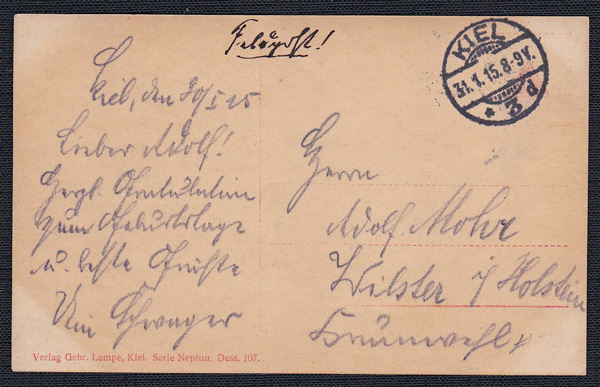 Feldpost!
KIEL
31.1.15.8-9V.
* 3 d
Kiel, den 30/I 15
Lieber Adolf!
Herzl. Gratulation
zum Geburtstage
u. beste Grüße
Schwager
Herrn
Adolf Mohr
Wilster i/Holstein
Verlag Gebr. Lempe, Kiel. Serie Neptun. Dess. 107.